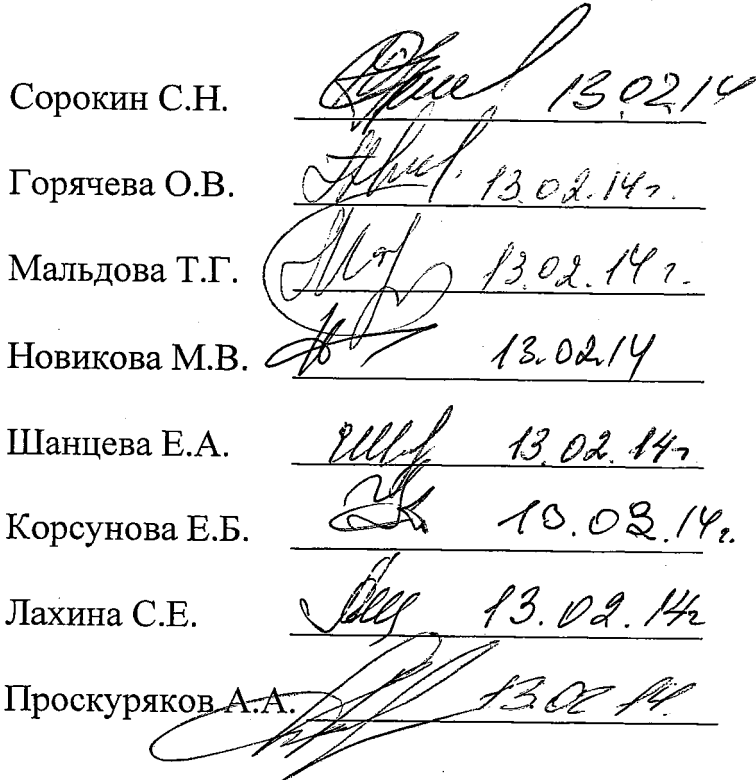 Сорокин С.Н. 130214
Горячева О.В. 13.02.14г.
Мальдова Т.Г. 13.02.14 г.
Новикова М.В. 13.02.14
Шанцева Е.А. 13.02.14г
Корсунова Е.Б. 13.02.14г.
Лахина С.Е. 13.02.14г
Проскуряков А.А. 13.02.14.